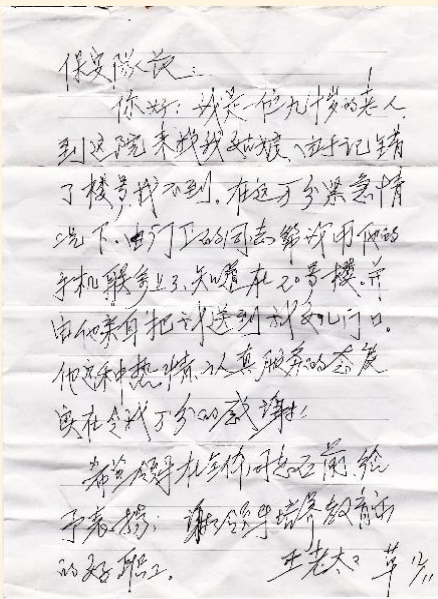 保安队长：
你好！我是一位九十岁的老人
到这院来找我姑娘、由于记错
了楼号，找不到。在这万分紧急情
况下、门卫的同志帮我用他的
手机联系上了，知道在20号楼。并
由他亲自把我送到我女儿门口。
他这种热情认真服务的态度
实在令我万分的感谢！
希望领导在全体同志面前给
予表扬；谢谢领导培养教育出
的好职工。
王老太 草 12/11